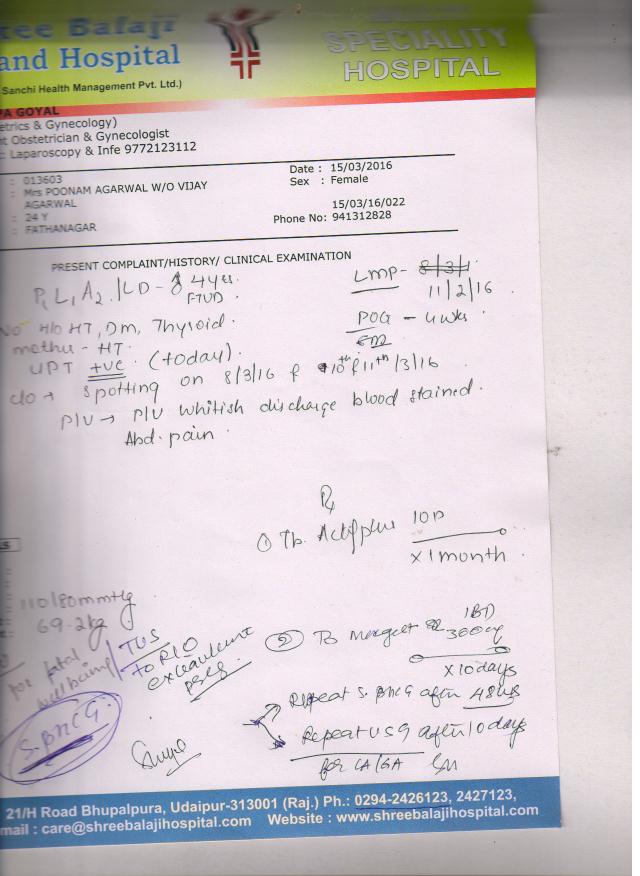 ree Balaji
and Hospital
SPECIALITY
HOSPITAL
Sanchi Health Management Pvt. Ltd.)
PA GOYAL
etrics & Gynecology)
nt Obstetrician & Gynecologist
: Laparoscopy & Infe 9772123112
: 013603
: Mrs POONAM AGARWAL W/O VIJAY
AGARWAL
: 24 Y
: FATHANAGAR
Date : 15/03/2016
Sex : Female
15/03/16/022
Phone No: 941312828
PRESENT COMPLAINT/HISTORY/ CLINICAL EXAMINATION
P1 L1 A2 / LD - 4 yrs.
FTUD
LMP - 8/3/1
11/2/16
POG - 4 wks
No H/o HT, DM, Thyroid.
mother - HT.
UPT +ve (today).
c/o → Spotting on 8/3/16 & 10th & 11th/3/16
P/V → P/V whitish discharge blood stained.
Abd. pain.
Rx
① Tb. 1OD
x 1 month
110/80mmHg
69.2kg
for fetal
wellbeing
TVS
to R/O
② Tb 1BD
300mg
x 10 days
S. BHCG.
Repeat S. BHCG after 48 hrs
Repeat USG after 10 days
for CA/GA
21/H Road Bhupalpura, Udaipur-313001 (Raj.) Ph.: 0294-2426123, 2427123,
mail : care@shreebalajihospital.com Website : www.shreebalajihospital.com